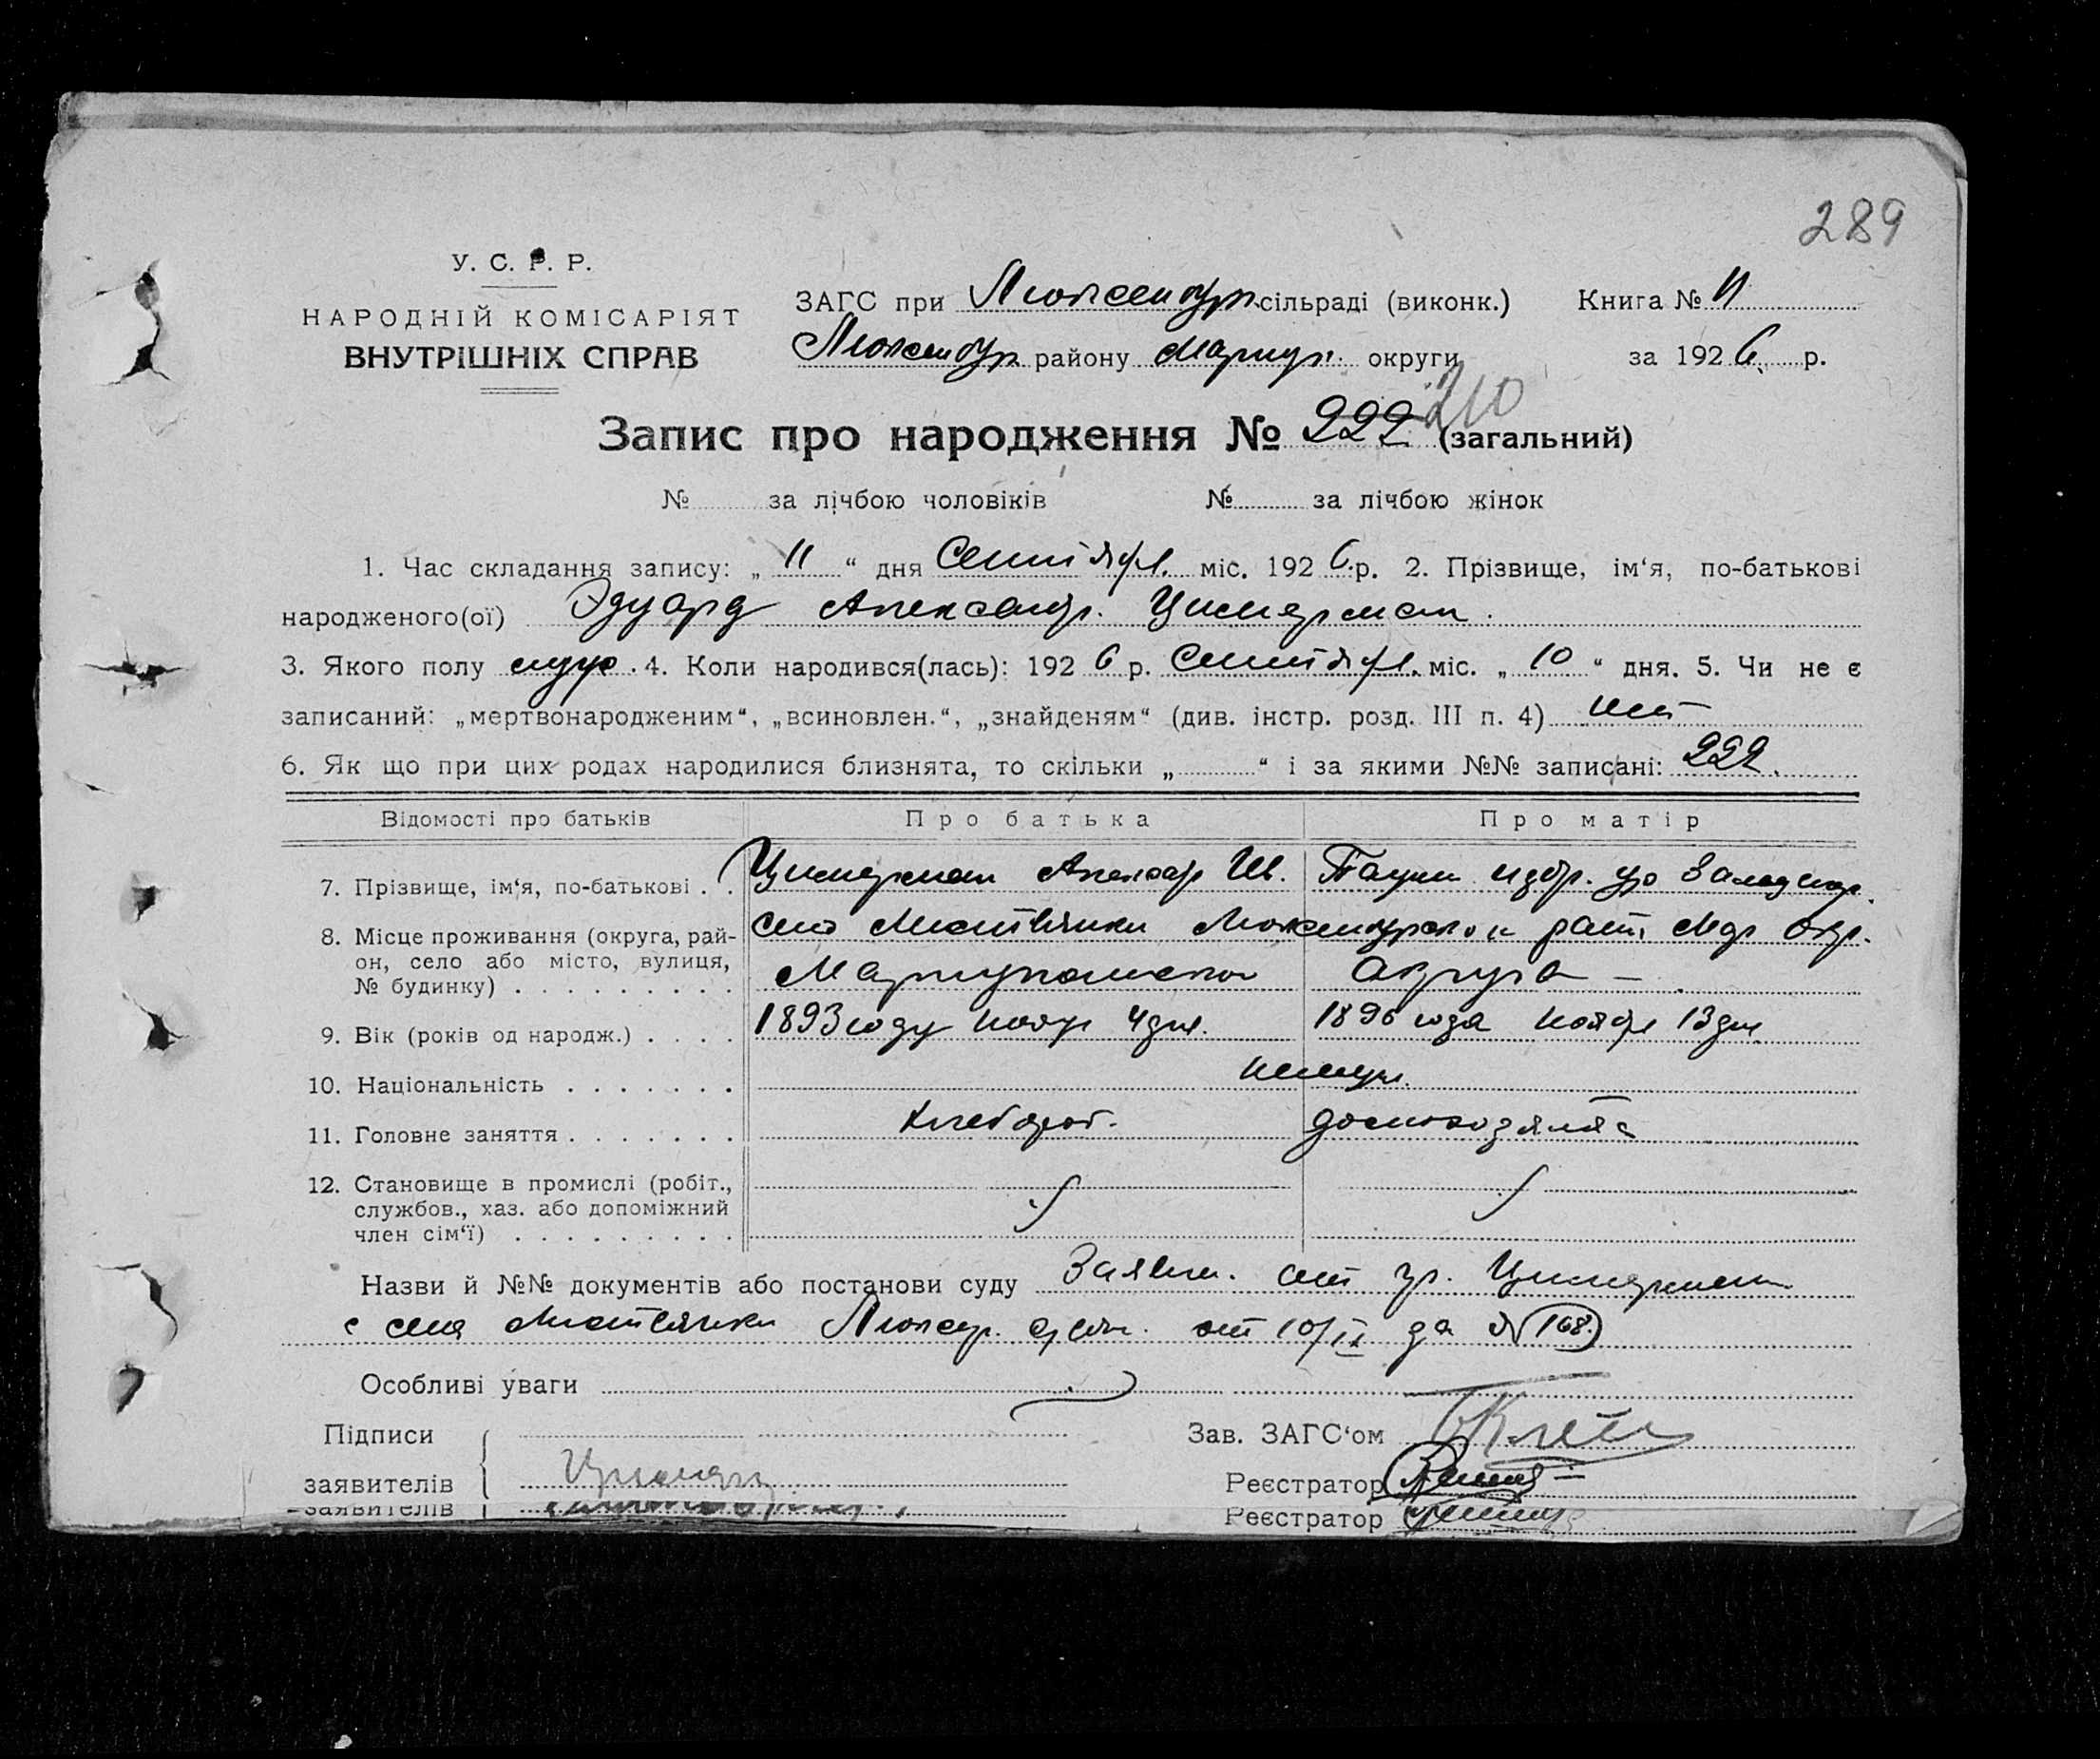 289
У. С. Р. Р.
НАРОДНІЙ КОМІСАРІЯТ
ВНУТРІШНІХ СПРАВ
ЗАГС при Люксембург. сільраді (виконк.) Книга № 11
Люксембур. району Мариуп. округи за 1926 р.
Запис про народження № 222 210 (загальний)
№ за лічбою чоловіків № за лічбою жінок
1. Час складання запису: „ 11 “ дня Сентября міс. 1926 р. 2. Прізвище, ім‘я, по-батькові
народженого(ої) Эдуард Александр. Цимерман.
3. Якого полу муж. 4. Коли народився(лась): 1926 р. Сентября міс. „ 10 “ дня. 5. Чи не є
записаний: „мертвонародженим“, „всиновлен.“, „знайденям“ (див. інстр. розд. III п. 4) нет
6. Як що при цих родах народилися близнята, то скільки „ “ і за якими №№ записані: 222.
Відомості про батьків Про батька Про матір
7. Прізвище, ім‘я, по-батькові . . Цимерман
8. Місце проживання (округа, рай-
он, село або місто, вулиця,
№ будинку) . . . . . . . . .
село
Мариупольской Округа —
9. Вік (років од народж.) . . . . 1893 году 4 дня. 1896 года Ноября 13 дня
10. Національність . . . . . . . немцы.
11. Головне заняття . . . . . . . хлебороб. домохозяйка
12. Становище в промислі (робіт.,
службов., хаз. або допоміжний
член сім‘ї) . . . . . . . . .
Назви й №№ документів або постанови суду Заявл. от гр. Цимерман
с села Люксем. от 10/IX за № 168.
Особливі уваги
Підписи
заявителів
Зав. ЗАГС‘ом
Реєстратор
заявителів
Реєстратор